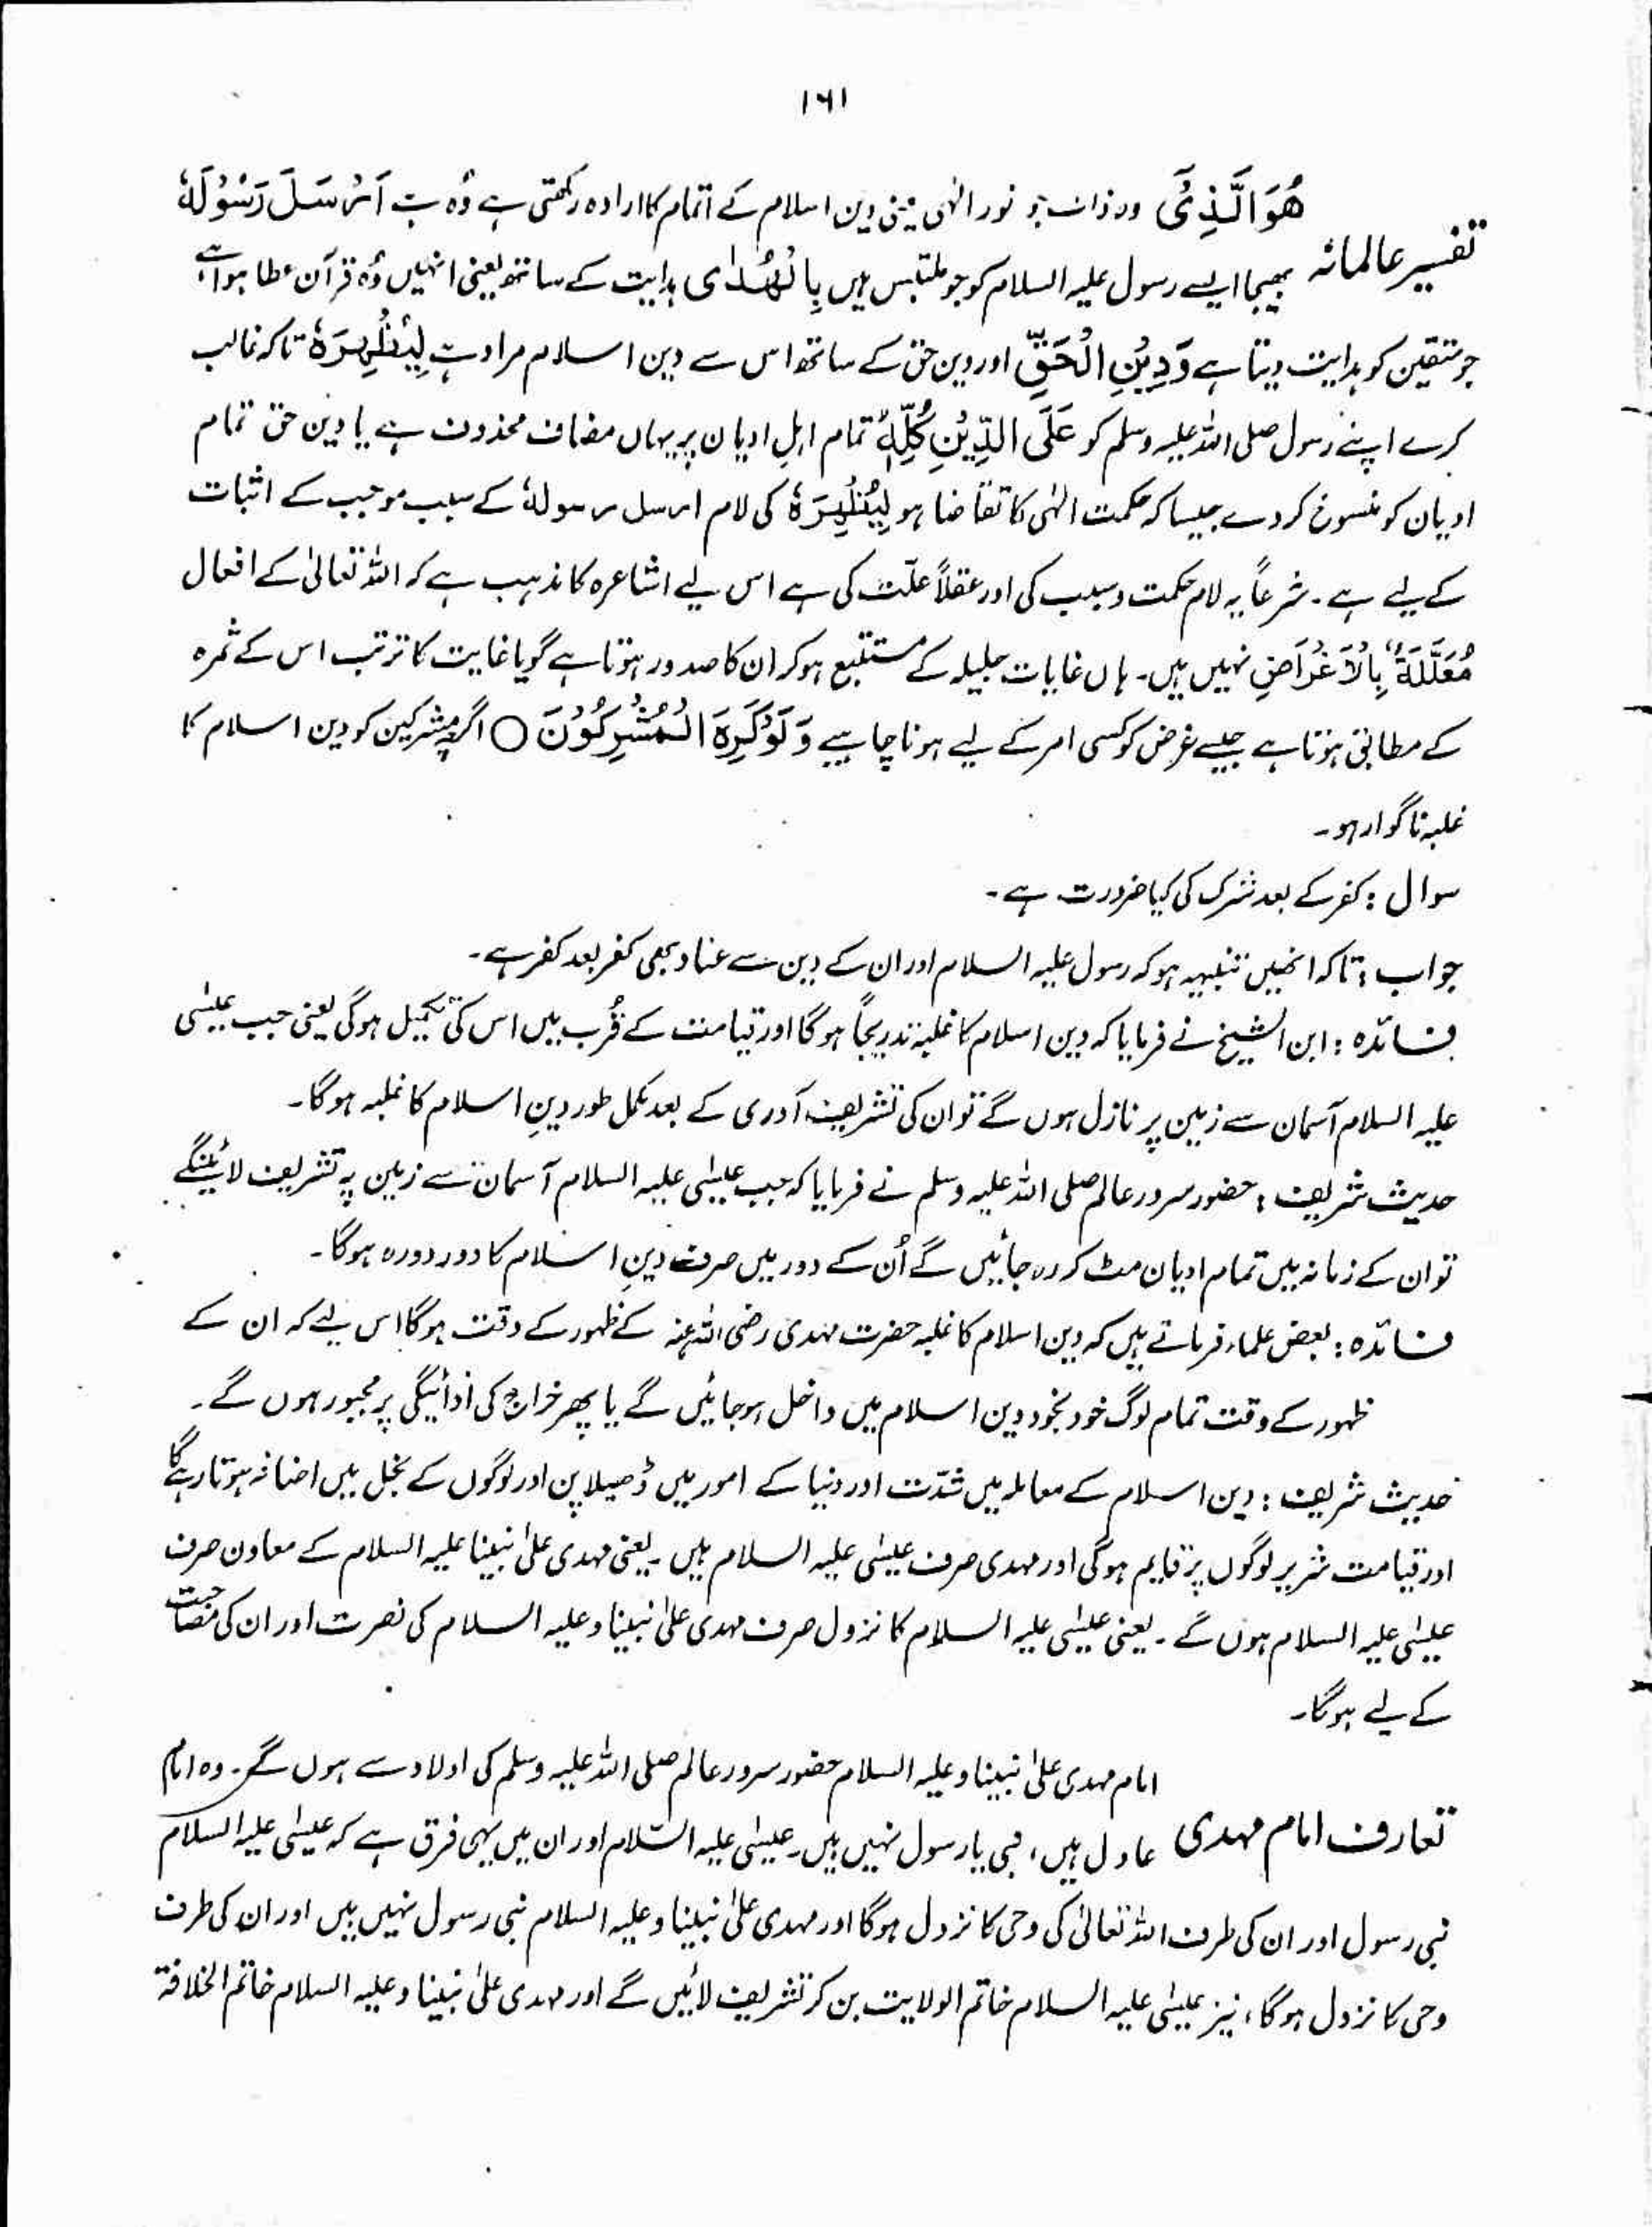 ۱۶۱
تفسیر عالمانہ
هُوَ الَّذِیْۤ وہ ذات جو نور الٰہی یعنی دین اسلام کے اتمام کا ارادہ رکھتی ہے وُہ ہے اَرْسَلَ رَسُوْلَهٗ
بھیجا ایسے رسول علیہ السلام کو جو ملتبس ہیں بِالْهُدٰی ہدایت کے ساتھ یعنی انہیں وُہ قرآن عطا ہوا ہے
جو متقین کو ہدایت دیتا ہے وَ دِیْنِ الْحَقِّ اور دین حق کے ساتھ اس سے دین اسلام مراد ہے لِیُظْهِرَهٗ تاکہ غالب
کرے اپنے رسول صلی اللہ علیہ وسلم کو عَلَی الدِّیْنِ كُلِّهٖ تمام اہلِ ادیان پر یہاں مضاف محذوف ہے یا دین حق تمام
ادیان کو منسوخ کردے جیسا کہ حکمت الٰہی کا تقاضا ہو لِیُظْهِرَهٗ کی لام ارسل رسولهٗ کے سبب موجب کے اثبات
کے لیے ہے۔ شرعاً یہ لام حکمت و سبب کی اور عقلاً علّت کی ہے اس لیے اشاعرہ کا مذہب ہے کہ اللہ تعالیٰ کے افعال
مُعَلَّلَةٌ بِالْاَغْرَاضِ نہیں ہیں۔ ہاں غایات جلیلہ کے مستتبع ہو کر ان کا صدور ہوتا ہے گویا غایت کا ترتب اس کے ثمرہ
کے مطابق ہوتا ہے جیسے غرض کو کسی امر کے لیے ہونا چاہیے وَ لَوْ كَرِهَ الْمُشْرِكُوْنَ ○ اگرچہ مشرکین کو دین اسلام کا
غلبہ ناگوار ہو۔
سوال : کفر کے بعد شرک کی کیا ضرورت ہے۔
جواب : تاکہ انھیں تنبیہہ ہو کہ رسول علیہ السلام اور ان کے دین سے عناد بھی کفر بعد کفر ہے۔
فائدہ : ابن الشیخ نے فرمایا کہ دین اسلام کا غلبہ تدریجاً ہوگا اور قیامت کے قُرب میں اس کی تکمیل ہوگی یعنی جب عیسٰی
علیہ السلام آسمان سے زمین پر نازل ہوں گے تو ان کی تشریف آوری کے بعد مکمل طور دینِ اسلام کا غلبہ ہوگا۔
حدیث شریف : حضور سرور عالم صلی اللہ علیہ وسلم نے فرمایا کہ جب عیسٰی علیہ السلام آسمان سے زمین پہ تشریف لائینگے
تو ان کے زمانہ میں تمام ادیان مٹ کر رہ جائیں گے اُن کے دور میں صرف دینِ اسلام کا دور دورہ ہوگا۔
فائدہ : بعض علماء فرماتے ہیں کہ دین اسلام کا غلبہ حضرت مہدی رضی اللہ عنہ کے ظہور کے وقت ہوگا اس لیے کہ ان کے
ظہور کے وقت تمام لوگ خود بخود دین اسلام میں داخل ہوجائیں گے یا پھر خراج کی ادائیگی پر مجبور ہوں گے۔
حدیث شریف : دین اسلام کے معاملہ میں شدّت اور دنیا کے امور میں ڈھیلا پن اور لوگوں کے بخل میں اضافہ ہوتا رہے گا
اور قیامت شریر لوگوں پر قایم ہوگی اور مہدی صرف عیسٰی علیہ السلام ہیں۔ یعنی مہدی علیٰ نبینا علیہ السلام کے معاون صرف
عیسٰی علیہ السلام ہوں گے۔ یعنی عیسٰی علیہ السلام کا نزول صرف مہدی علیٰ نبینا و علیہ السلام کی نصرت اور ان کی مصاحبت
کے لیے ہوگا۔
تعارف امام مہدی
امام مہدی علیٰ نبینا و علیہ السلام حضور سرور عالم صلی اللہ علیہ وسلم کی اولاد سے ہوں گے۔ وہ امام
عادل ہیں، نبی یا رسول نہیں ہیں۔ عیسٰی علیہ السّلام اور ان میں یہی فرق ہے کہ عیسٰی علیہ السلام
نبی رسول اور ان کی طرف اللہ تعالیٰ کی وحی کا نزول ہوگا اور مہدی علیٰ نبینا و علیہ السلام نبی رسول نہیں ہیں اور ان کی طرف
وحی کا نزول ہوگا، نیز عیسٰی علیہ السلام خاتم الولایت بن کر تشریف لائیں گے اور مہدی علیٰ نبینا و علیہ السلام خاتم الخلافۃ